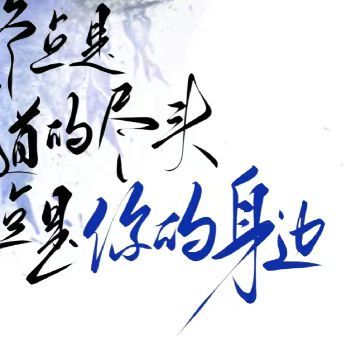 点是
道的尽头
点是你的身边